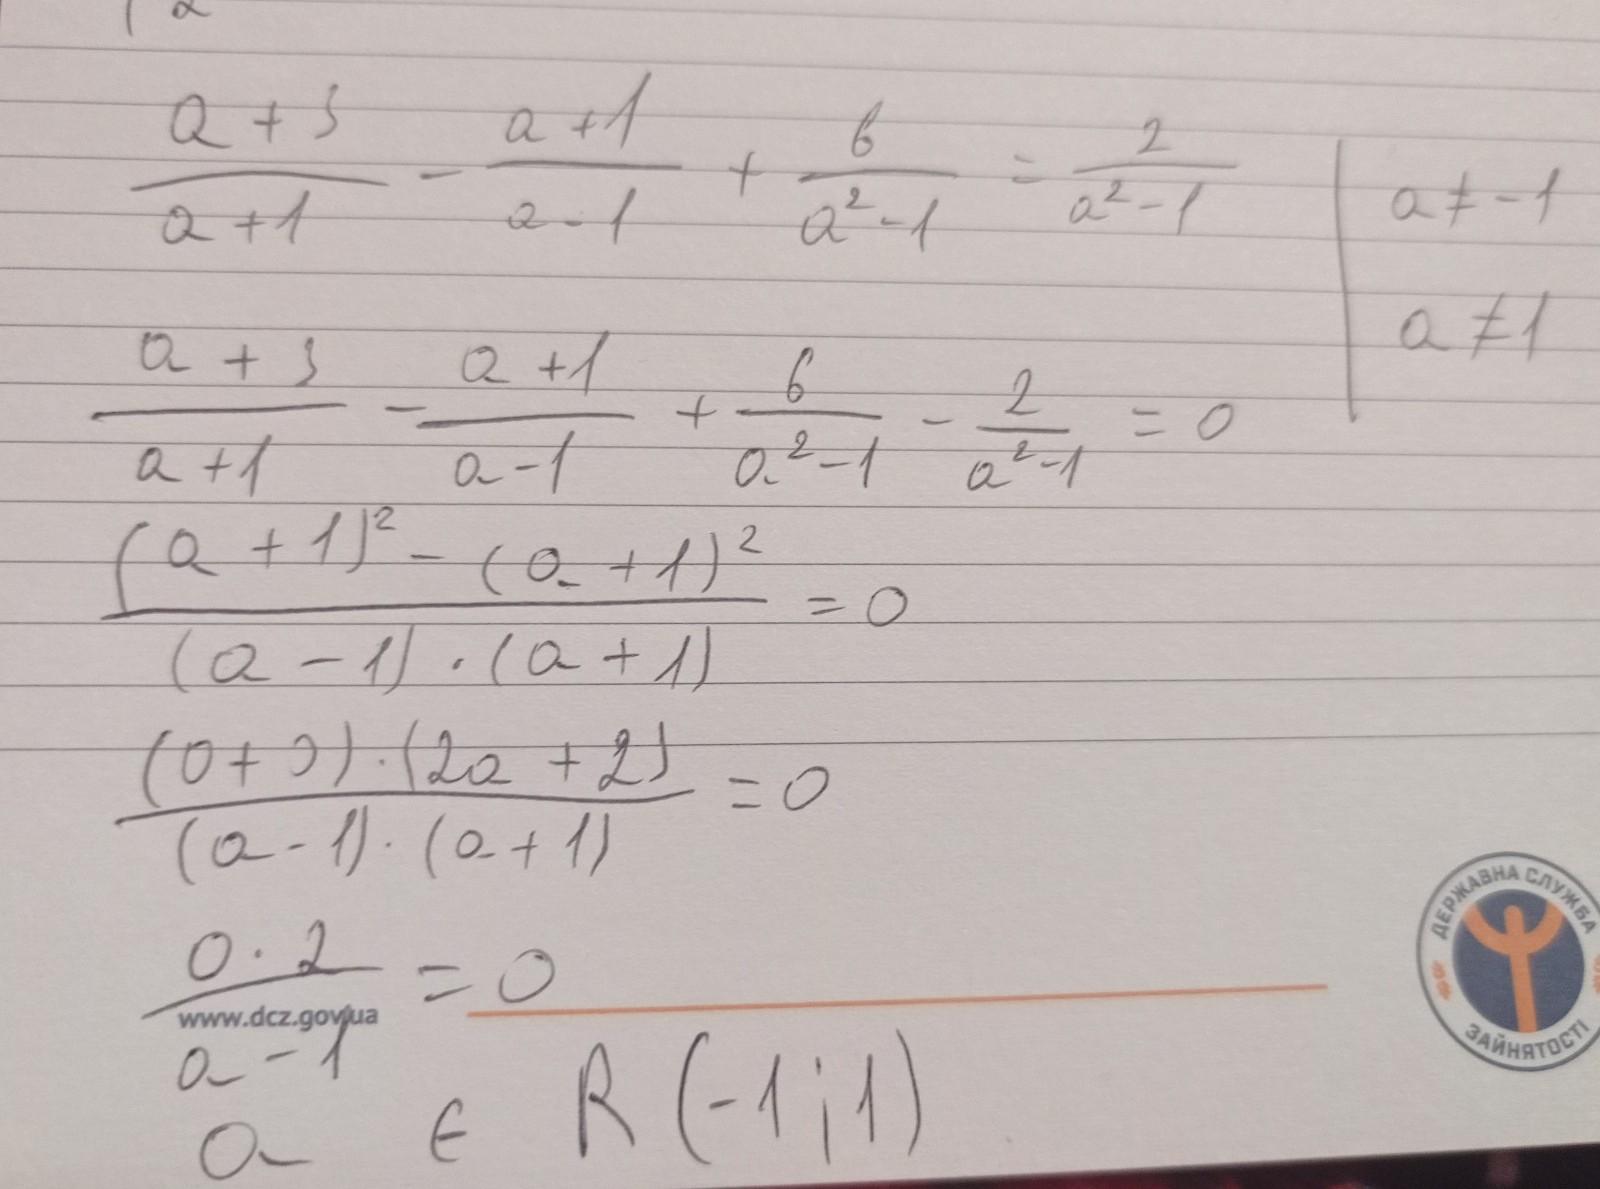 2
a + 3 / a + 1 - a + 1 / a - 1 + 6 / a² - 1 = 2 / a² - 1 | a ≠ -1
a ≠ 1
a + 3 / a + 1 - a + 1 / a - 1 + 6 / a² - 1 - 2 / a² - 1 = 0
(a + 1)² - (a + 1)² / (a - 1) · (a + 1) = 0
(0 + 0) · (2a + 2) / (a - 1) · (a + 1) = 0
0 · 2 / a - 1 = 0
www.dcz.gov.ua
a ∈ R (-1; 1)
ДЕРЖАВНА СЛУЖБА
ЗАЙНЯТОСТІ